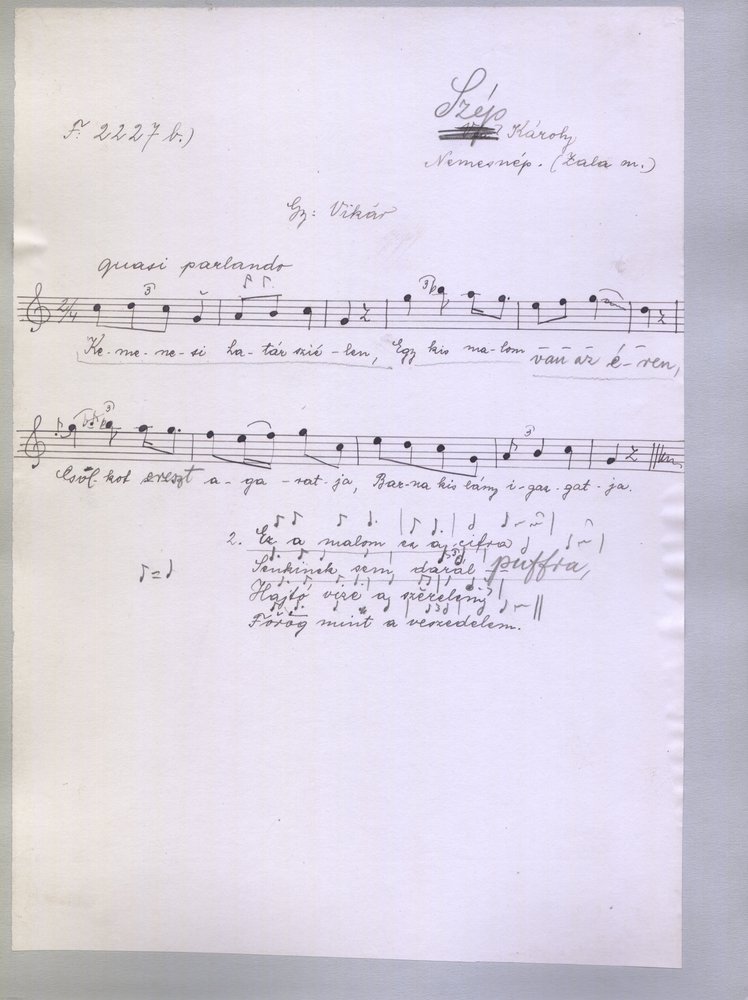 F. 2227 b.)
Szép
Károly
Nemesnép. (Zala m.)
Gy: Vikár
quasi parlando
2/4 3 3
Ke-me-ne-si ha-tár szié-len, Egy kis ma-lom van az é-ren,
3 3
Csöl-kot ereszt a-ga-rat-ja, Bar-na kis lány i-gaz-gat-ja.
2. Ez a malom ez a cifra
Senkinek sem darál puffra,
Hajtó vize a szerelem,
Förög mint a veszedelem.